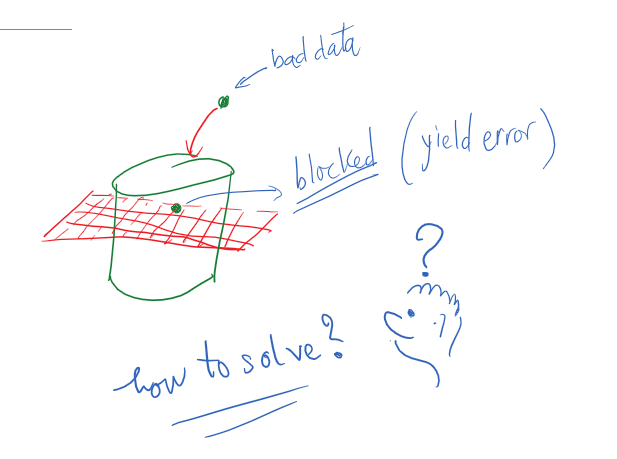 bad data
blocked (yield error)
?
how to solve?